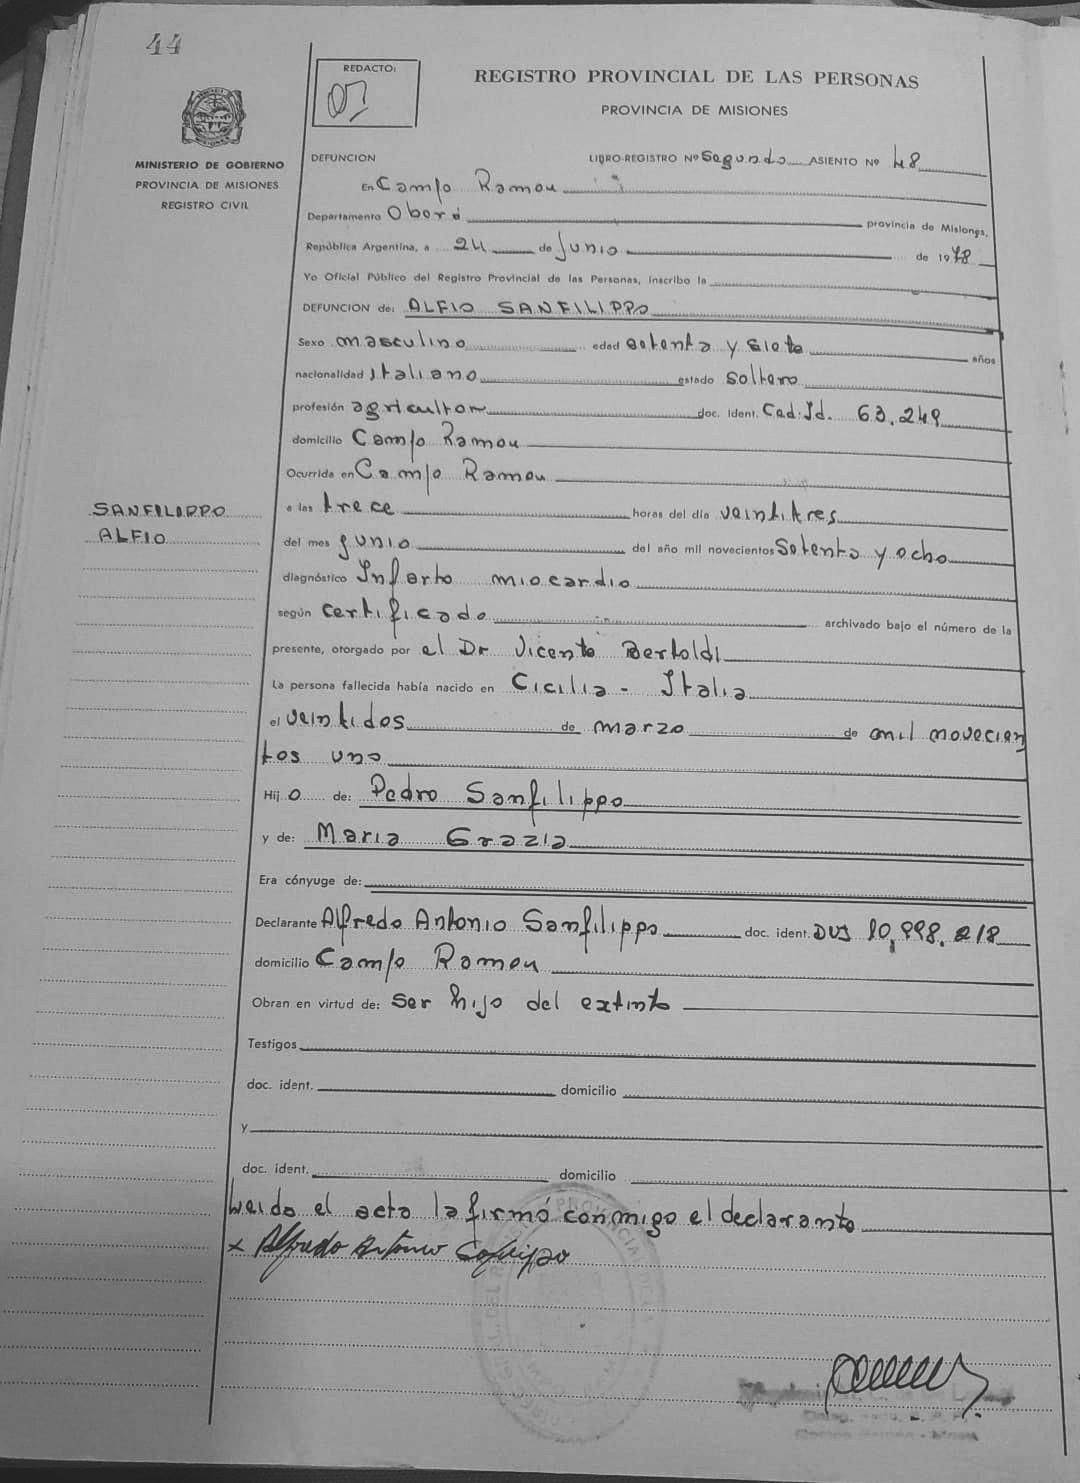 44
REDACTO:
REGISTRO PROVINCIAL DE LAS PERSONAS
PROVINCIA DE MISIONES
MINISTERIO DE GOBIERNO
PROVINCIA DE MISIONES
REGISTRO CIVIL
DEFUNCION LIBRO-REGISTRO Nº Segundo ASIENTO Nº 48
En Campo Ramon
Departamento Oberá provincia de Misiones,
República Argentina, a 24 de Junio de 1978
Yo Oficial Público del Registro Provincial de las Personas, inscribo la
DEFUNCION de: ALFIO SANFILIPPO
Sexo masculino edad setenta y siete años
nacionalidad italiano estado soltero
profesión agricultor doc. Ident. Ced. Id. 63.249
domicilio Campo Ramon
Ocurrida en Campo Ramon
SANFILIPPO
ALFIO
a las trece horas del día veintitres
del mes junio del año mil novecientos Setenta y ocho
diagnóstico Infarto miocardio
según certificado archivado bajo el número de la
presente, otorgado por el Dr Vicente Bertoldi
La persona fallecida había nacido en Cicilia - Italia
el veintidos de marzo de mil novecien
tos uno
Hijo de: Pedro Sanfilippo
y de: Maria Grazia
Era cónyuge de:
Declarante Alfredo Antonio Sanfilippo doc. ident. DUJ 10,998.218
domicilio Campo Ramon
Obran en virtud de: ser hijo del extinto
Testigos
doc. ident. domicilio
y
doc. ident. domicilio
Leido el acta la firmó conmigo el declarante
x Alfredo Antonio